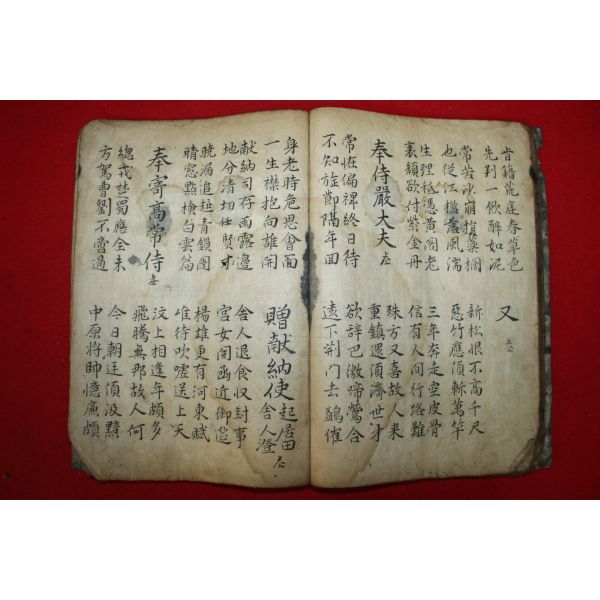 肯藉荒庭春草色
先到一飲醉如泥
又 左
常苦沙崩損藥欄
也從江檻落風湍
新松恨不高千尺
惡竹應須斬萬竿
生理秪憑黃閣老
衰顔欲付紫金丹
三年奔走空皮骨
信有人間行路難
奉侍嚴大夫 左
殊方又喜故人来
重鎮還須濟世才
常恠偏裨終日待
不知旌節隔年回
欲辞巴徼啼鶯合
遠下荆门去鷁催
身老時危思會面
一生襟抱向誰開
贈献納使起居田舍人澄 左
献納司存雨露邊
地分清切任賢才
舍人退食収封事
宮女開函近御筵
曉漏追趍青鎖闥
晴窓點檢白雲篇
楊雄更有河東賦
唯待吹噓送上天
奉寄高常侍 左
汶上相逢年頗多
飛騰無那故人何
總戎楚蜀應全未
方駕曹劉不啻過
今日朝廷須汲黯
中原將帥憶廉頗